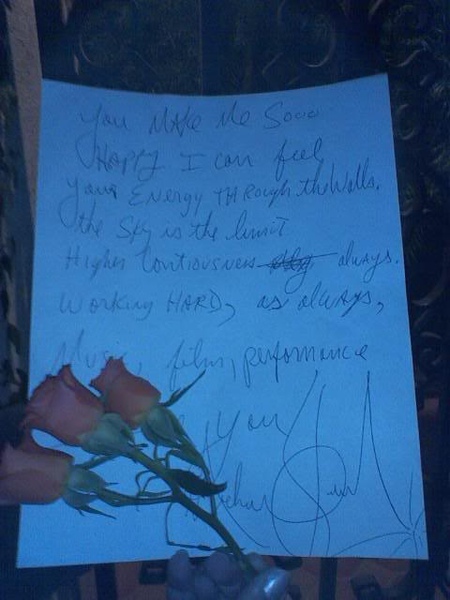 You Make Me Sooo
HAPPY I can feel
your ENERGY THRough the Walls.
the Sky is the limit
Higher Contiousness always.
Working HARD, as always,
Music, film, performance
You